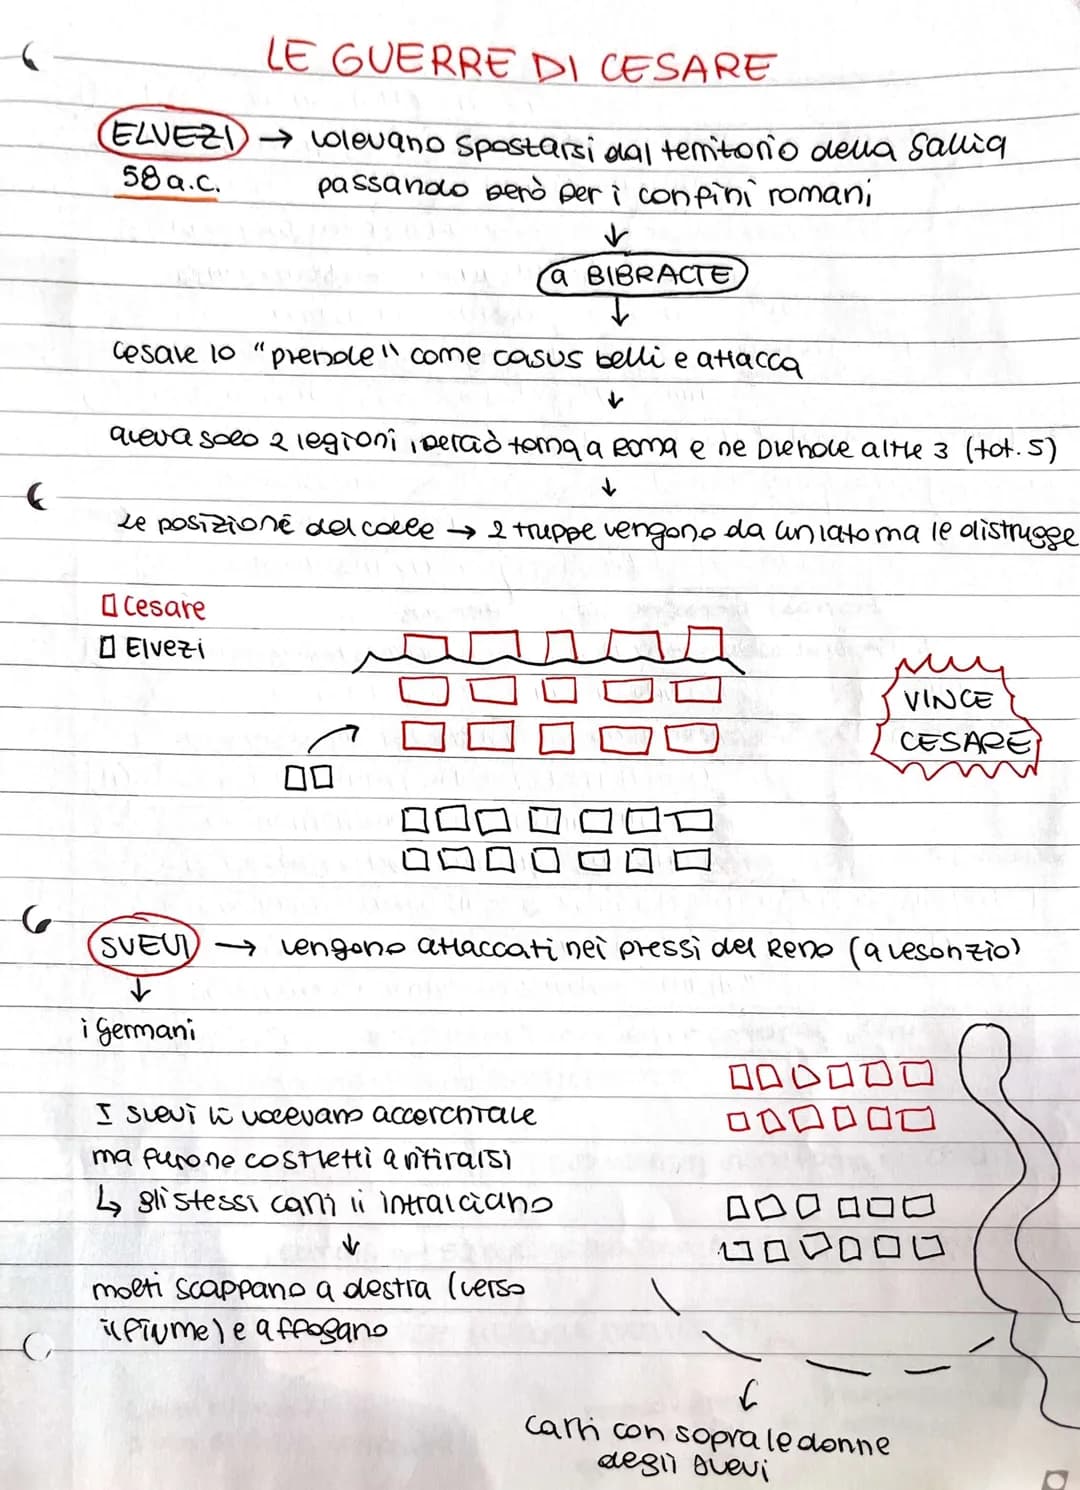 LE GUERRE DI CESARE
ELVEZI → volevano spostarsi dal territorio della Gallia
58 a.c. passando però per i confini romani
↓
a BIBRACTE
↓
Cesare lo "prende" come casus belli e attacca
↓
aveva solo 2 legioni, perciò torna a Roma e ne prende altre 3 (tot. 5)
↓
Le posizione del colle → 2 truppe vengono da un lato ma le distrugge
Cesare
Elvezi
VINCE
CESARE
SVEVI → vengono attaccati nei pressi del Reno (a vesonzio)
↓
i Germani
I svevi li volevano accerchiare
ma furono costretti a ritirarsi
↳ gli stessi carri li intralciano
↓
molti scappano a destra (verso
il fiume) e affogano
↓
carri con sopra le donne
degli svevi